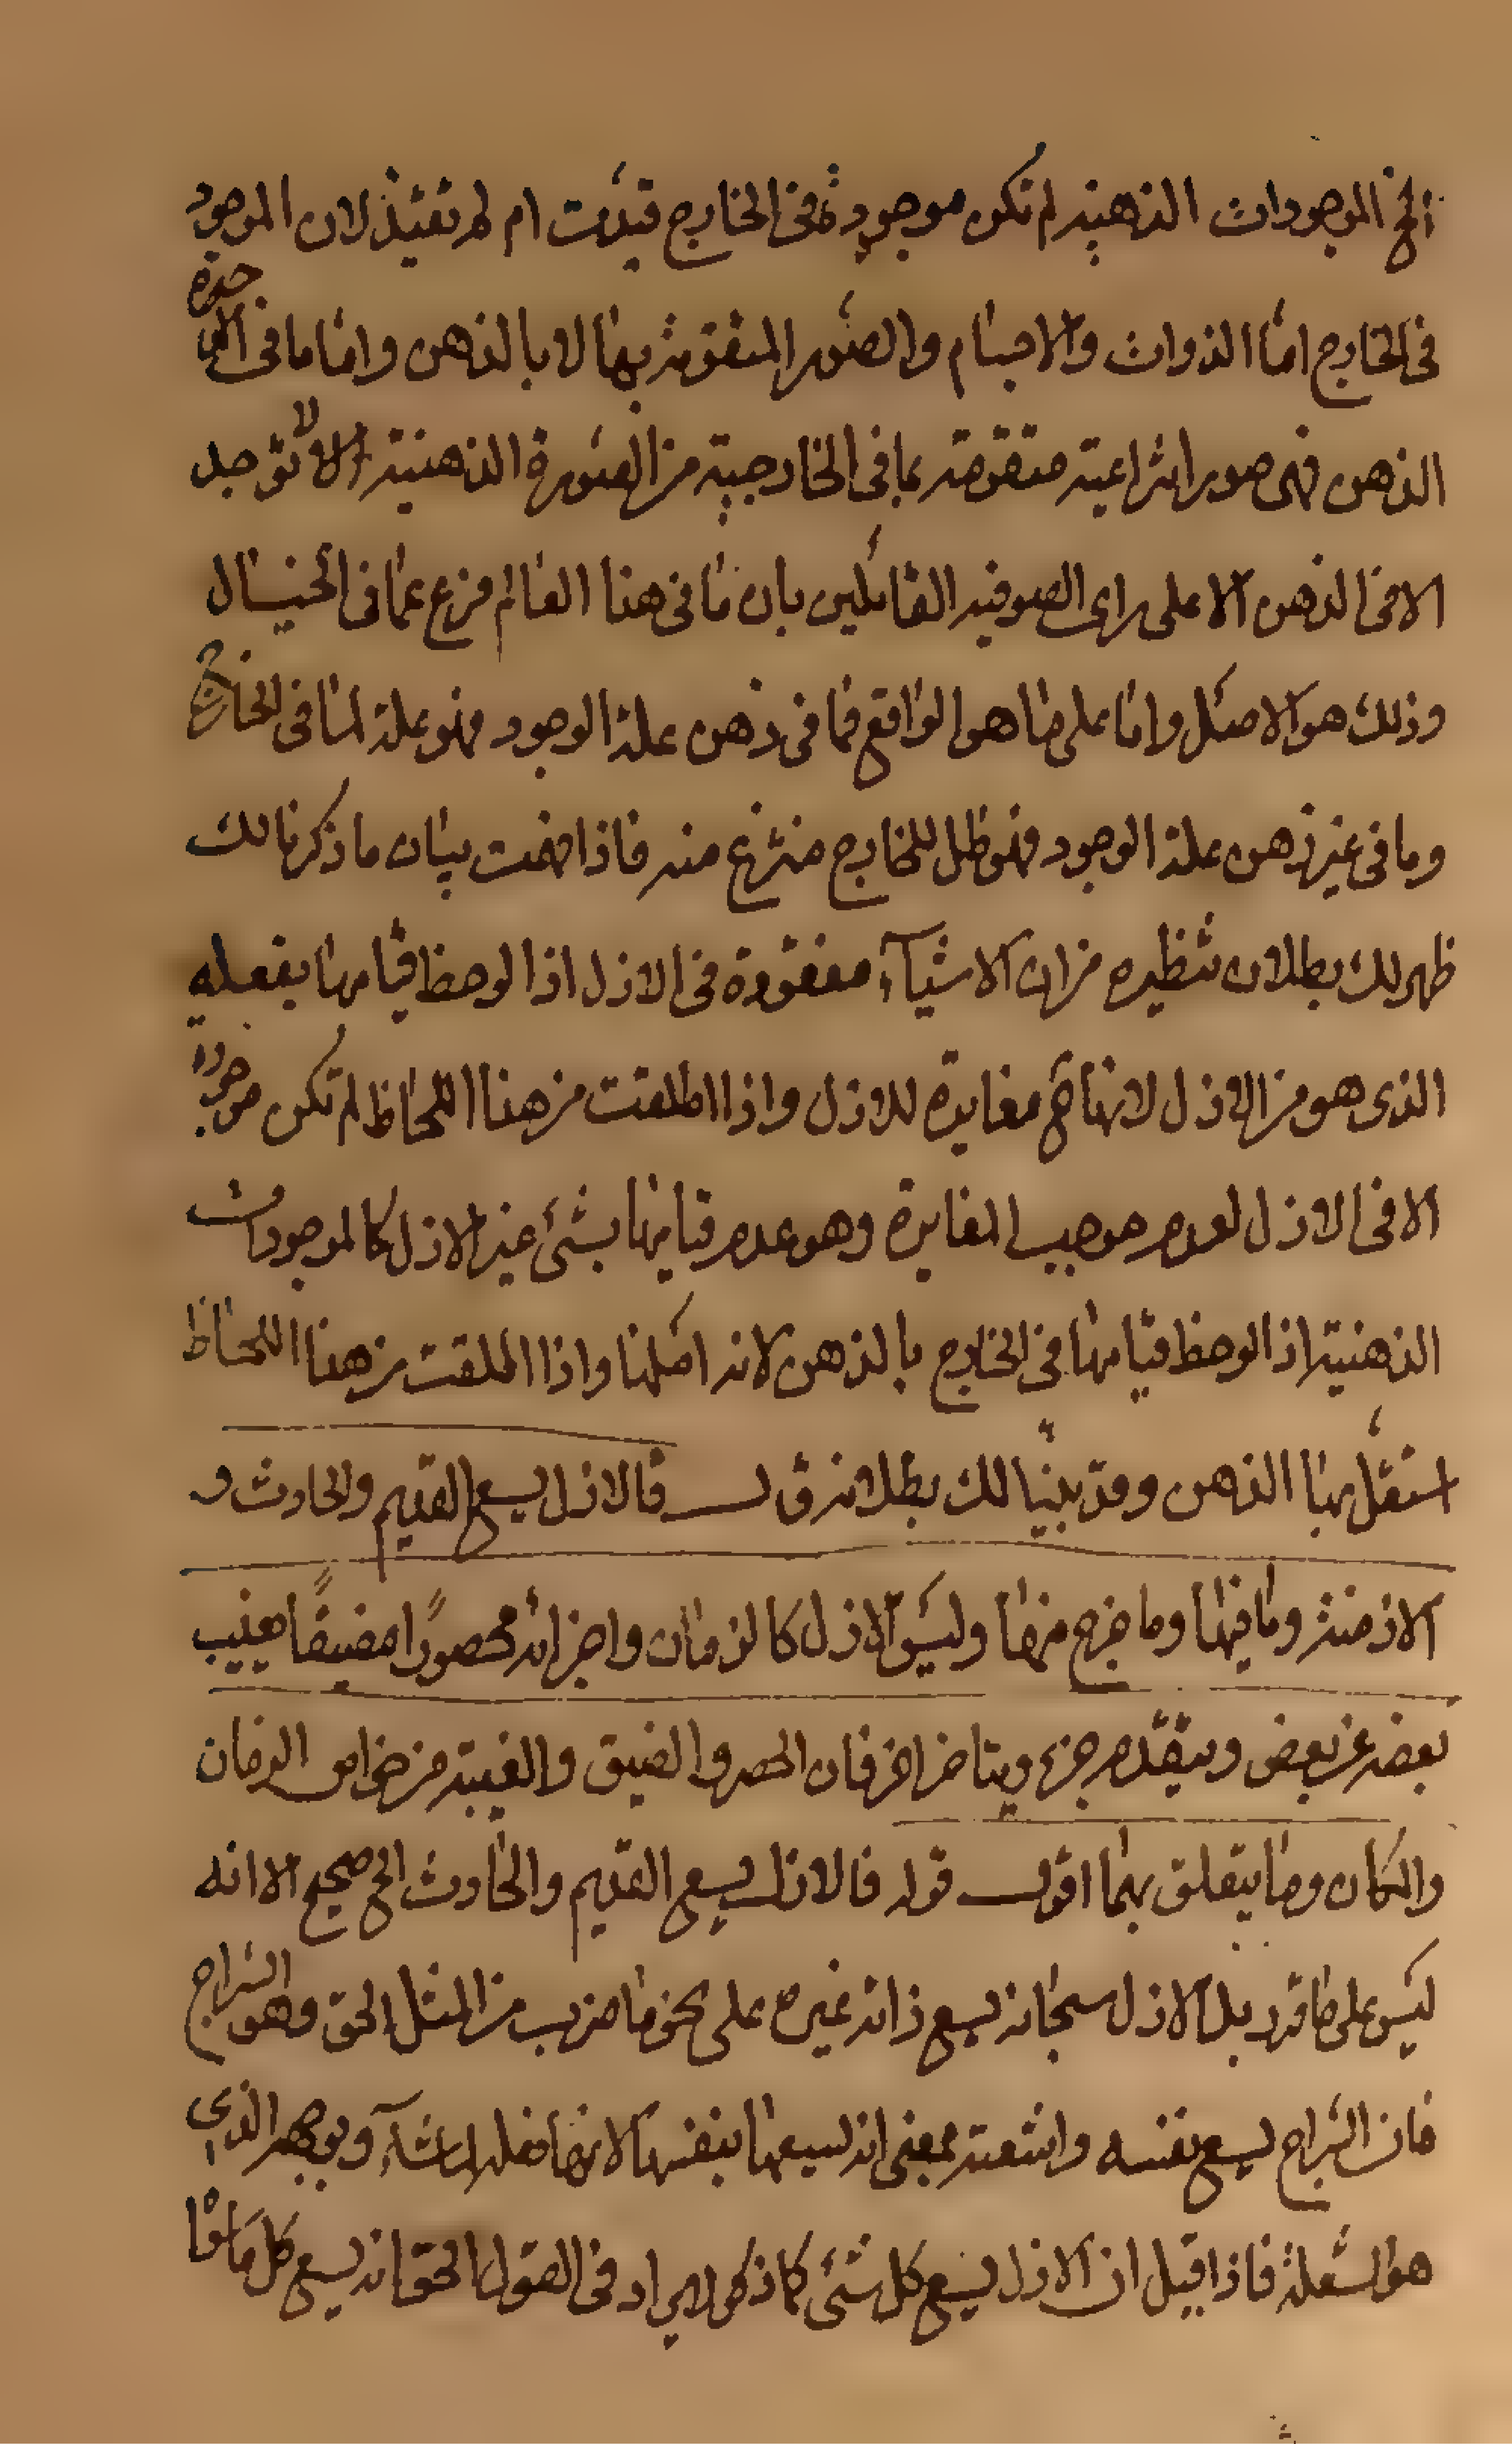 الخ الموجودات الذهنية لم تكن موجودة فى الخارج قيدت ام لم تقيد لان الموجود
فى الخارج اما الذوات والاجسام والصور المتقومة بها لا بالذهن واما ما فى
الذهن فهى صور انتزاعية متقومة بما فى الخارجية من الصورة الذهنية لا توجد
الا فى الذهن الا على راى الصوفية القائلين بان ما فى هذا العالم فرع عما فى الخيال
وذلك هو الاصل واما على ما هو الواقع فما فى ذهن علة الوجود فهو علة لما فى الخارج
وما فى غير ذهن علة الوجود فهو ظل للخارج منتزع منه فاذا فهمت بيان ما ذكرنا لك
ظهر لك بطلان تنظيره من ان الاشياء مفقودة فى الازل اذا لوحظ قيامها بفعله
الذى هو من الازل لانها ح مغايرة للازل واذا اطلقت من هذا اللحاظ لم تكن موجودة
الا فى الازل لعدم موجب المغايرة وهو عدم قيامها بشئ غير الازل كالموجودات
الذهنية اذا لوحظ قيامها فى الخارج بالذهن لانه اصلها واذا اطلقت من هذا اللحاظ
استقل بها الذهن وقد بينا لك بطلانه قال فالازل يسع القديم والحادث و
الازمنة وما فيها وما خرج منها وليس الازل كالزمان واجزائه محصورا مضيقا يغيب
بعضه عن بعض ويتقدم جزء ويتاخر اخر فان الحصر والضيق والغيبة من خواص الزمان
والمكان وما يتعلق بهما اقول قوله فالازل يسع القديم والحادث الخ صحيح الا انه
ليس على ما قرر بل الازل سبحانه يسع ذاته غيره على نحو ما ضرب من المثل الحق وهو السراج
فان السراج يسع نفسه واشعته بمعنى انه يسعها بنفسها لانها فعله انشاء وبوجهه الذى
هو الشعلة فاذا قيل ان الازل يسع كل شئ كما ذكر لا يراد فى القول الحق انه يسع كل ما سواه